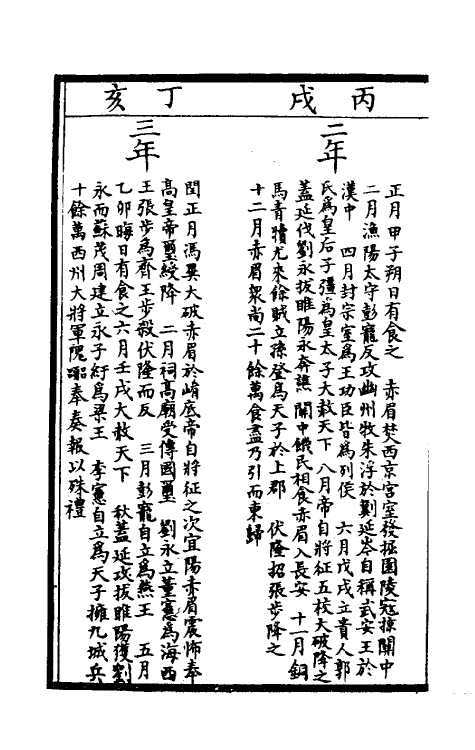 丙戌
二年
正月甲子朔日有食之　赤眉焚西京宮室發掘園陵寇掠關中
二月漁陽太守彭寵反攻幽州牧朱浮於薊延岑自稱武安王於
漢中　四月封宗室為王功臣皆為列侯　六月戊戌立貴人郭
氏為皇后子彊為皇太子大赦天下八月帝自將征五校大破降之
蓋延伐劉永拔睢陽永奔譙　關中饑民相食赤眉入長安　十一月銅
馬青犢尤來餘賊立孫登為天子於上郡　伏隆招張步降之
十二月赤眉衆尚二十餘萬食盡乃引而東歸
丁亥
三年
閏正月馮異大破赤眉於崤底帝自將征之次宜陽赤眉震怖奉
高皇帝璽綬降　二月祠高廟受傳國璽　劉永立董憲為海西
王張步為齊王步殺伏隆而反　三月彭寵自立為燕王　五月
乙卯晦日有食之六月壬戌大赦天下　秋蓋延攻拔睢陽獲劉
永而蘇茂周建立永子紆為梁王　李憲自立為天子擁九城兵
十餘萬西州大將軍隗囂奉奏報以殊禮